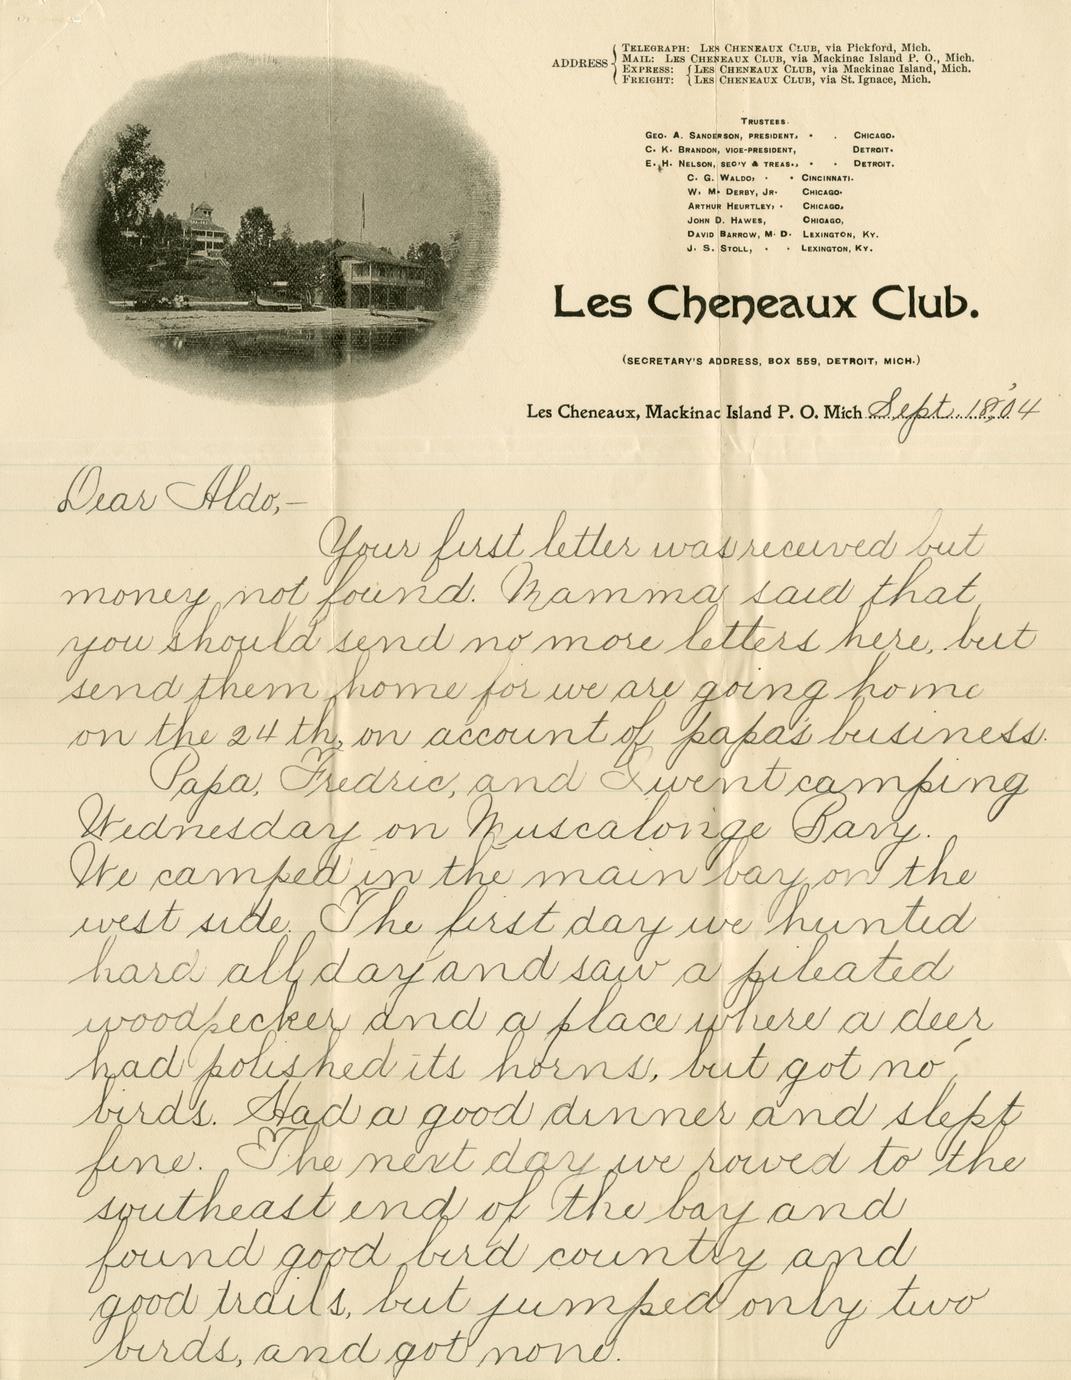 ADDRESS
TELEGRAPH: LES CHENEAUX CLUB, via Pickford, Mich.
MAIL: LES CHENEAUX CLUB, via Mackinac Island P. O., Mich.
EXPRESS: LES CHENEAUX CLUB, via Mackinac Island, Mich.
FREIGHT: LES CHENEAUX CLUB, via St. Ignace, Mich.
TRUSTEES.
GEO. A. SANDERSON, PRESIDENT, CHICAGO.
C. K. BRANDON, VICE-PRESIDENT, DETROIT.
E. H. NELSON, SEC'Y & TREAS., DETROIT.
C. G. WALDO, CINCINNATI.
W. M. DERBY, JR. CHICAGO.
ARTHUR HEURTLEY, CHICAGO.
JOHN D. HAWES, CHICAGO,
DAVID BARROW, M. D. LEXINGTON, KY.
J. S. STOLL, LEXINGTON, KY.
Les Cheneaux Club.
(SECRETARY'S ADDRESS, BOX 559, DETROIT, MICH.)
Les Cheneaux, Mackinac Island P. O. Mich Sept. 18, '04
Dear Aldo,—
Your first letter was received but
money not found. Mamma said that
you should send no more letters here, but
send them home for we are going home
on the 24 th, on account of papa's business.
Papa, Fredric, and I went camping
Wednesday on Muscalonge Bay.
We camped in the main bay on the
west side. The first day we hunted
hard all day and saw a pileated
woodpecker and a place where a deer
had polished its horns, but got no
birds. Had a good dinner and slept
fine. The next day we rowed to the
southeast end of the bay and
found good bird country and
good trails, but jumped only two
birds, and got none.